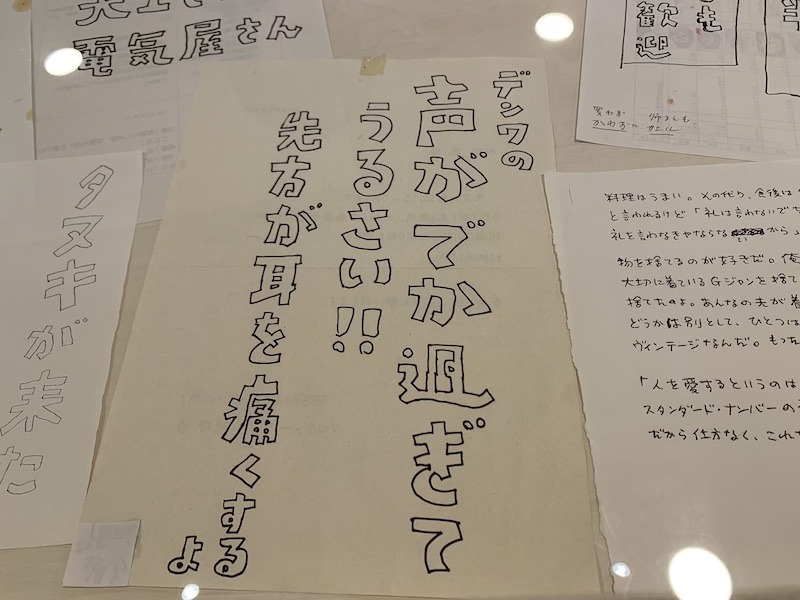 電気屋さん
デンワの
声がでか過ぎて
うるさい!!
先方が耳を痛くする
よ
タヌキが来た
も
歓迎
料理はうまい。その代り、食後は
と言われるけど「礼は言わないで
礼を言わなきゃならないから
物を捨てるのが好きだ。俺
大切に着ているGジャンを捨て
捨てたのよ。あんなの夫が着
どうかは別として、ひとつは
ヴィンテージなんだ。もった
「人を愛するというのは
スタンダード・ナンバーの
だから仕方なく、これ